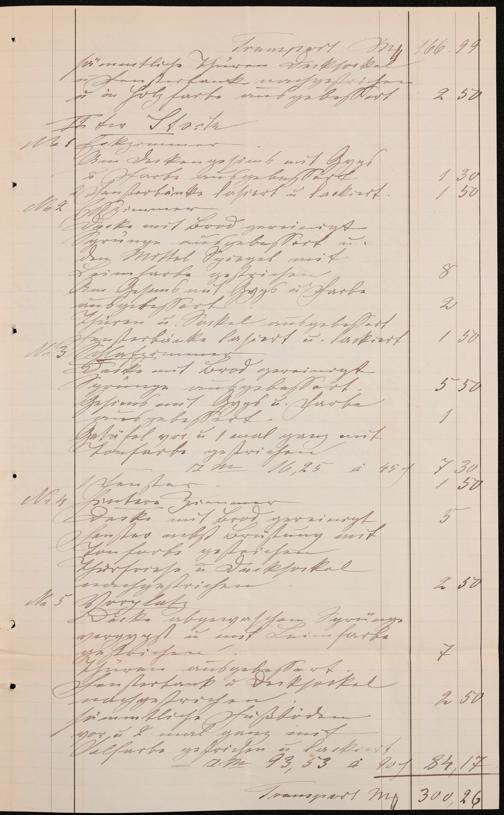 Transport Mk 166.99
sämmtliche Thüren Decksockel
u Fensterbank nachgestrichen
u in Holzfarbe ausgebessert 2 50
IIter Stock
No 1 Eckzimmer
Am Deckengesims mit Gyps
u Farbe ausgebessert 1 30
2 Fensterbänke lasiert u lackiert. 1 50
No 2 Esszimmer
Decke mit Brod gereinigt
Sprünge ausgebessert u.
den Mittel Spiegel mit
Leimfarbe gestrichen 8
Am Gesims mit Gyps u Farbe
ausgebessert 2
Thüren u. Sockel ausgebessert
Fensterbänke lasiert u. lackiert 1 50
No 3 Schlafzimmer
Decke mit Brod gereinigt
Sprünge ausgebessert. 5 50
Gesims mit Gyps u. Farbe
ausgebessert. 1
Getäfel vor u 1 mal ganz mit
Tonfarbe gestrichen
□m 16,25 à 45₰ 7 30
1 Fenster 1 50
No 4 Hintere Zimmer
Decke mit Brod gereinigt 5
Fenster nebst Brüstung mit
Tonfarbe gestrichen
u Decksockel
nachgestrichen 2 50
No 5 Vorplatz
Decke abgewaschen Sprünge
vergypst u mit Leimfarbe
gestrichen. 7
Thüren ausgebessert.
Fensterbank u Decksockel
nachgestrichen 2 50
sämmtliche Fußböden
vor u 2 mal ganz mit
Oelfarbe gestrichen u lackiert
□m 93,53 à 90₰ 84,17
Transport Mk 300,26